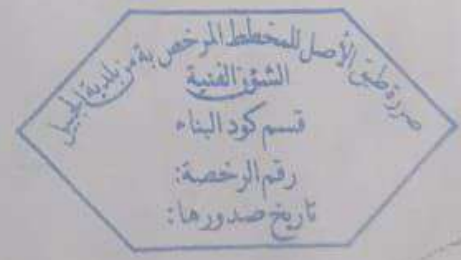 صورة طبق الأصل للمخطط المرخص به من بلدية الجبيل
الشئون الفنية
قسم كود البناء
رقم الرخصة:
تاريخ صدورها: